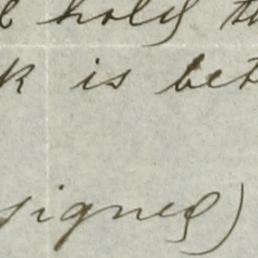 hold th
k is bet
signed)